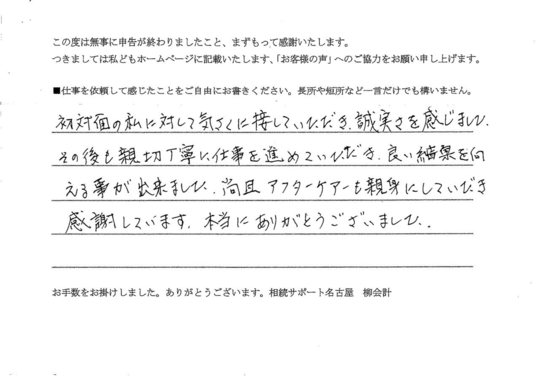 この度は無事に申告が終わりましたこと、まずもって感謝いたします。
つきましては私どもホームページに記載いたします、「お客様の声」へのご協力をお願い申し上げます。
■仕事を依頼して感じたことをご自由にお書きください。長所や短所など一言だけでも構いません。
初対面の私に対して気さくに接していただき、誠実さを感じました。
その後も親切丁寧に仕事を進めていただき、良い結果を向
える事が出来ました。尚且アフターケアーも親身にしていただき
感謝しています。本当にありがとうございました。
お手数をお掛けしました。ありがとうございます。相続サポート名古屋 柳会計